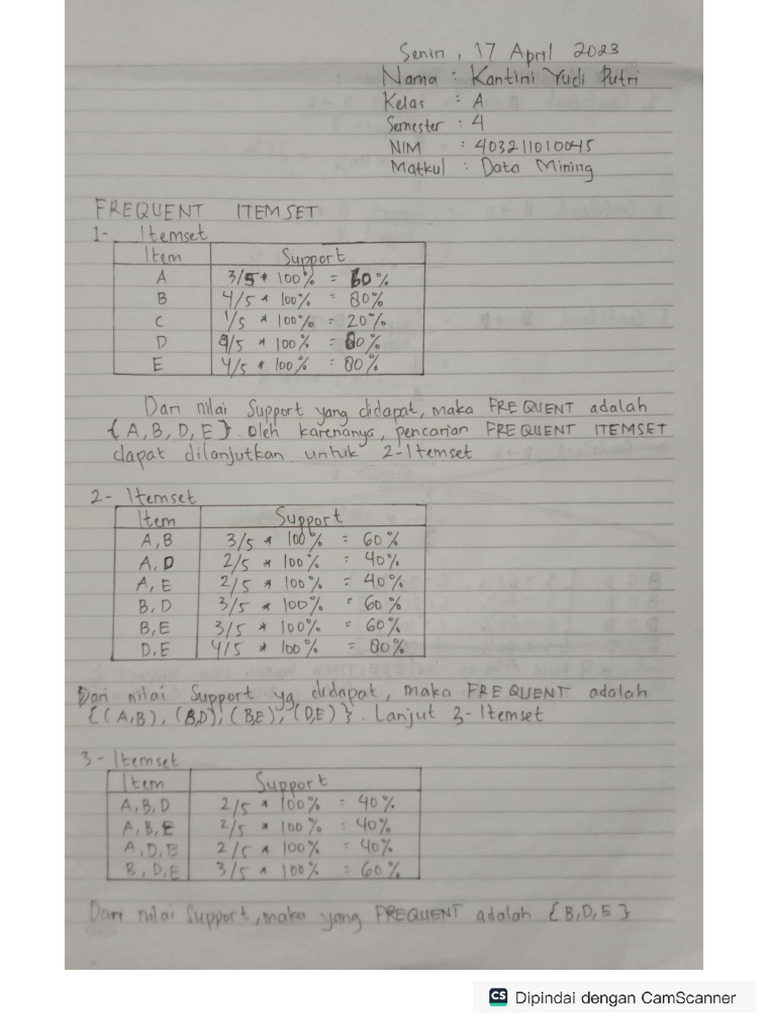 Senin, 17 April 2023
Nama : Kantini Yudi Putri
Kelas : A
Semester : 4
NIM : 403211010045
Matkul : Data Mining
FREQUENT ITEMSET
1- Itemset
Item Support
A 3/5 * 100% = 60%
B 4/5 * 100% = 80%
C 1/5 * 100% = 20%
D 4/5 * 100% = 80%
E 4/5 * 100% = 80%
Dari nilai Support yang didapat, maka FREQUENT adalah
{A, B, D, E}. Oleh karenanya, pencarian FREQUENT ITEMSET
dapat dilanjutkan untuk 2-Itemset
2- Itemset
Item Support
A, B 3/5 * 100% = 60%
A, D 2/5 * 100% = 40%
A, E 2/5 * 100% = 40%
B, D 3/5 * 100% = 60%
B, E 3/5 * 100% = 60%
D, E 4/5 * 100% = 80%
Dari nilai Support yg didapat, maka FREQUENT adalah
{(A,B), (B,D), (B,E), (D,E)}. Lanjut 3-Itemset
3- Itemset
Item Support
A, B, D 2/5 * 100% = 40%
A, B, E 2/5 * 100% = 40%
A, D, E 2/5 * 100% = 40%
B, D, E 3/5 * 100% = 60%
Dari nilai Support, maka yang FREQUENT adalah {B, D, E}
CS Dipindai dengan CamScanner